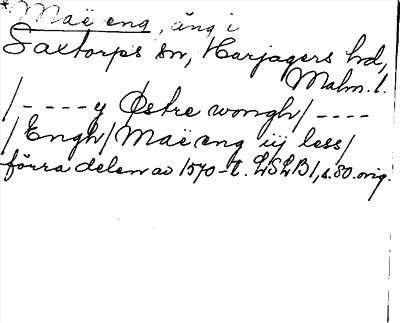 *Maë eng, äng i
Saxtorps sn, Harjagers hd,
Malm. l.
/ - - - - y Østre wongh / - - - -
/ Engh / Maë eng iij less /
förra delen av 1570-t. LSLB 1, s. 80. orig.